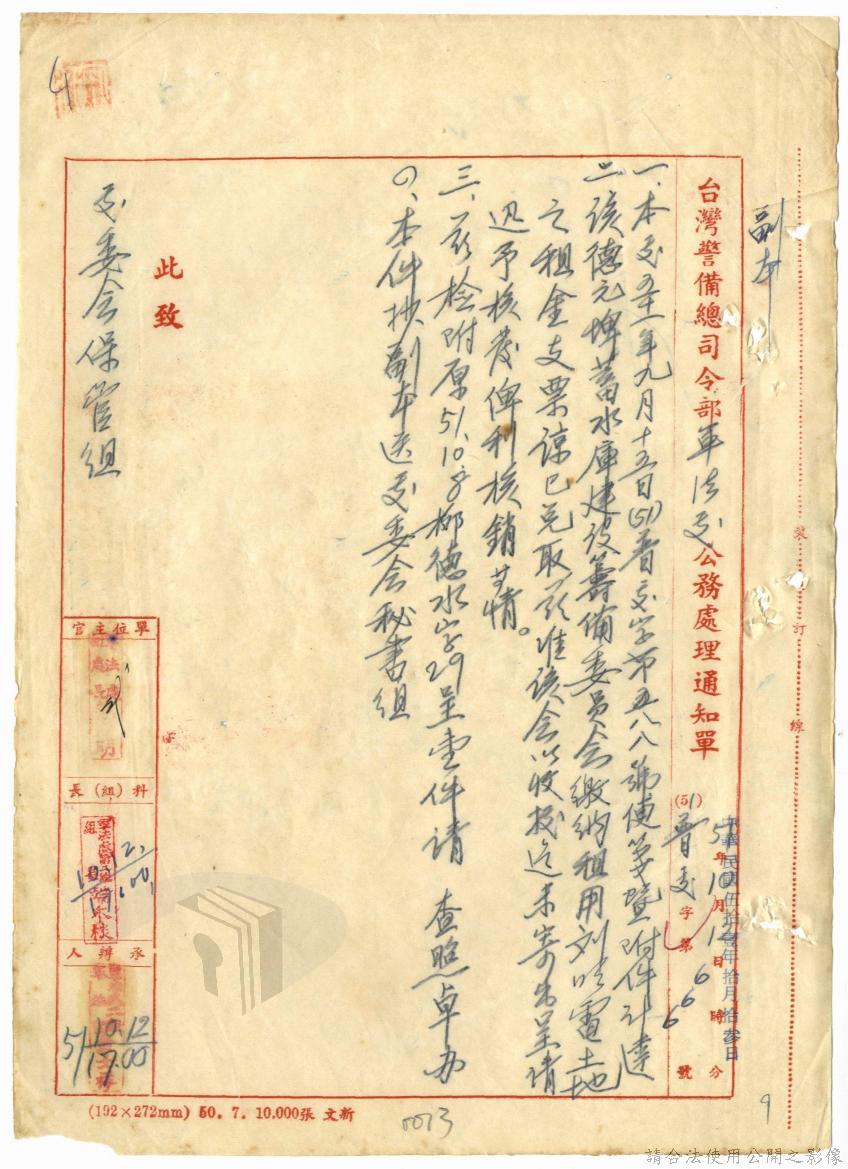 副本
台灣警備總司令部軍法處公務處理通知單
51年10月12日 時 分
中華民國伍拾壹年拾月拾參日
(51)普處字第666號
一、本處五十一年九月十五日(51)普處字第五八八號便箋暨附件計達
二、該德元埤蓄水庫建設籌備委員會繳納租用刘明電土地
之租金支票諒已兌取茲准該會以收據迄未寄出呈請
迅予核發俾利核銷等情。
三、茲檢附原51.10.字柳德水字29呈壹件請 查照卓办
四、本件抄副本送處委会秘書組
此致
處委会保管組
單位主官
科(組)長
承辦人
10.12
17.00
51 10.12 17.00
裝 訂 線
(192×272mm) 50. 7. 10.000張 文新
0013
9
請合法使用公開之影像